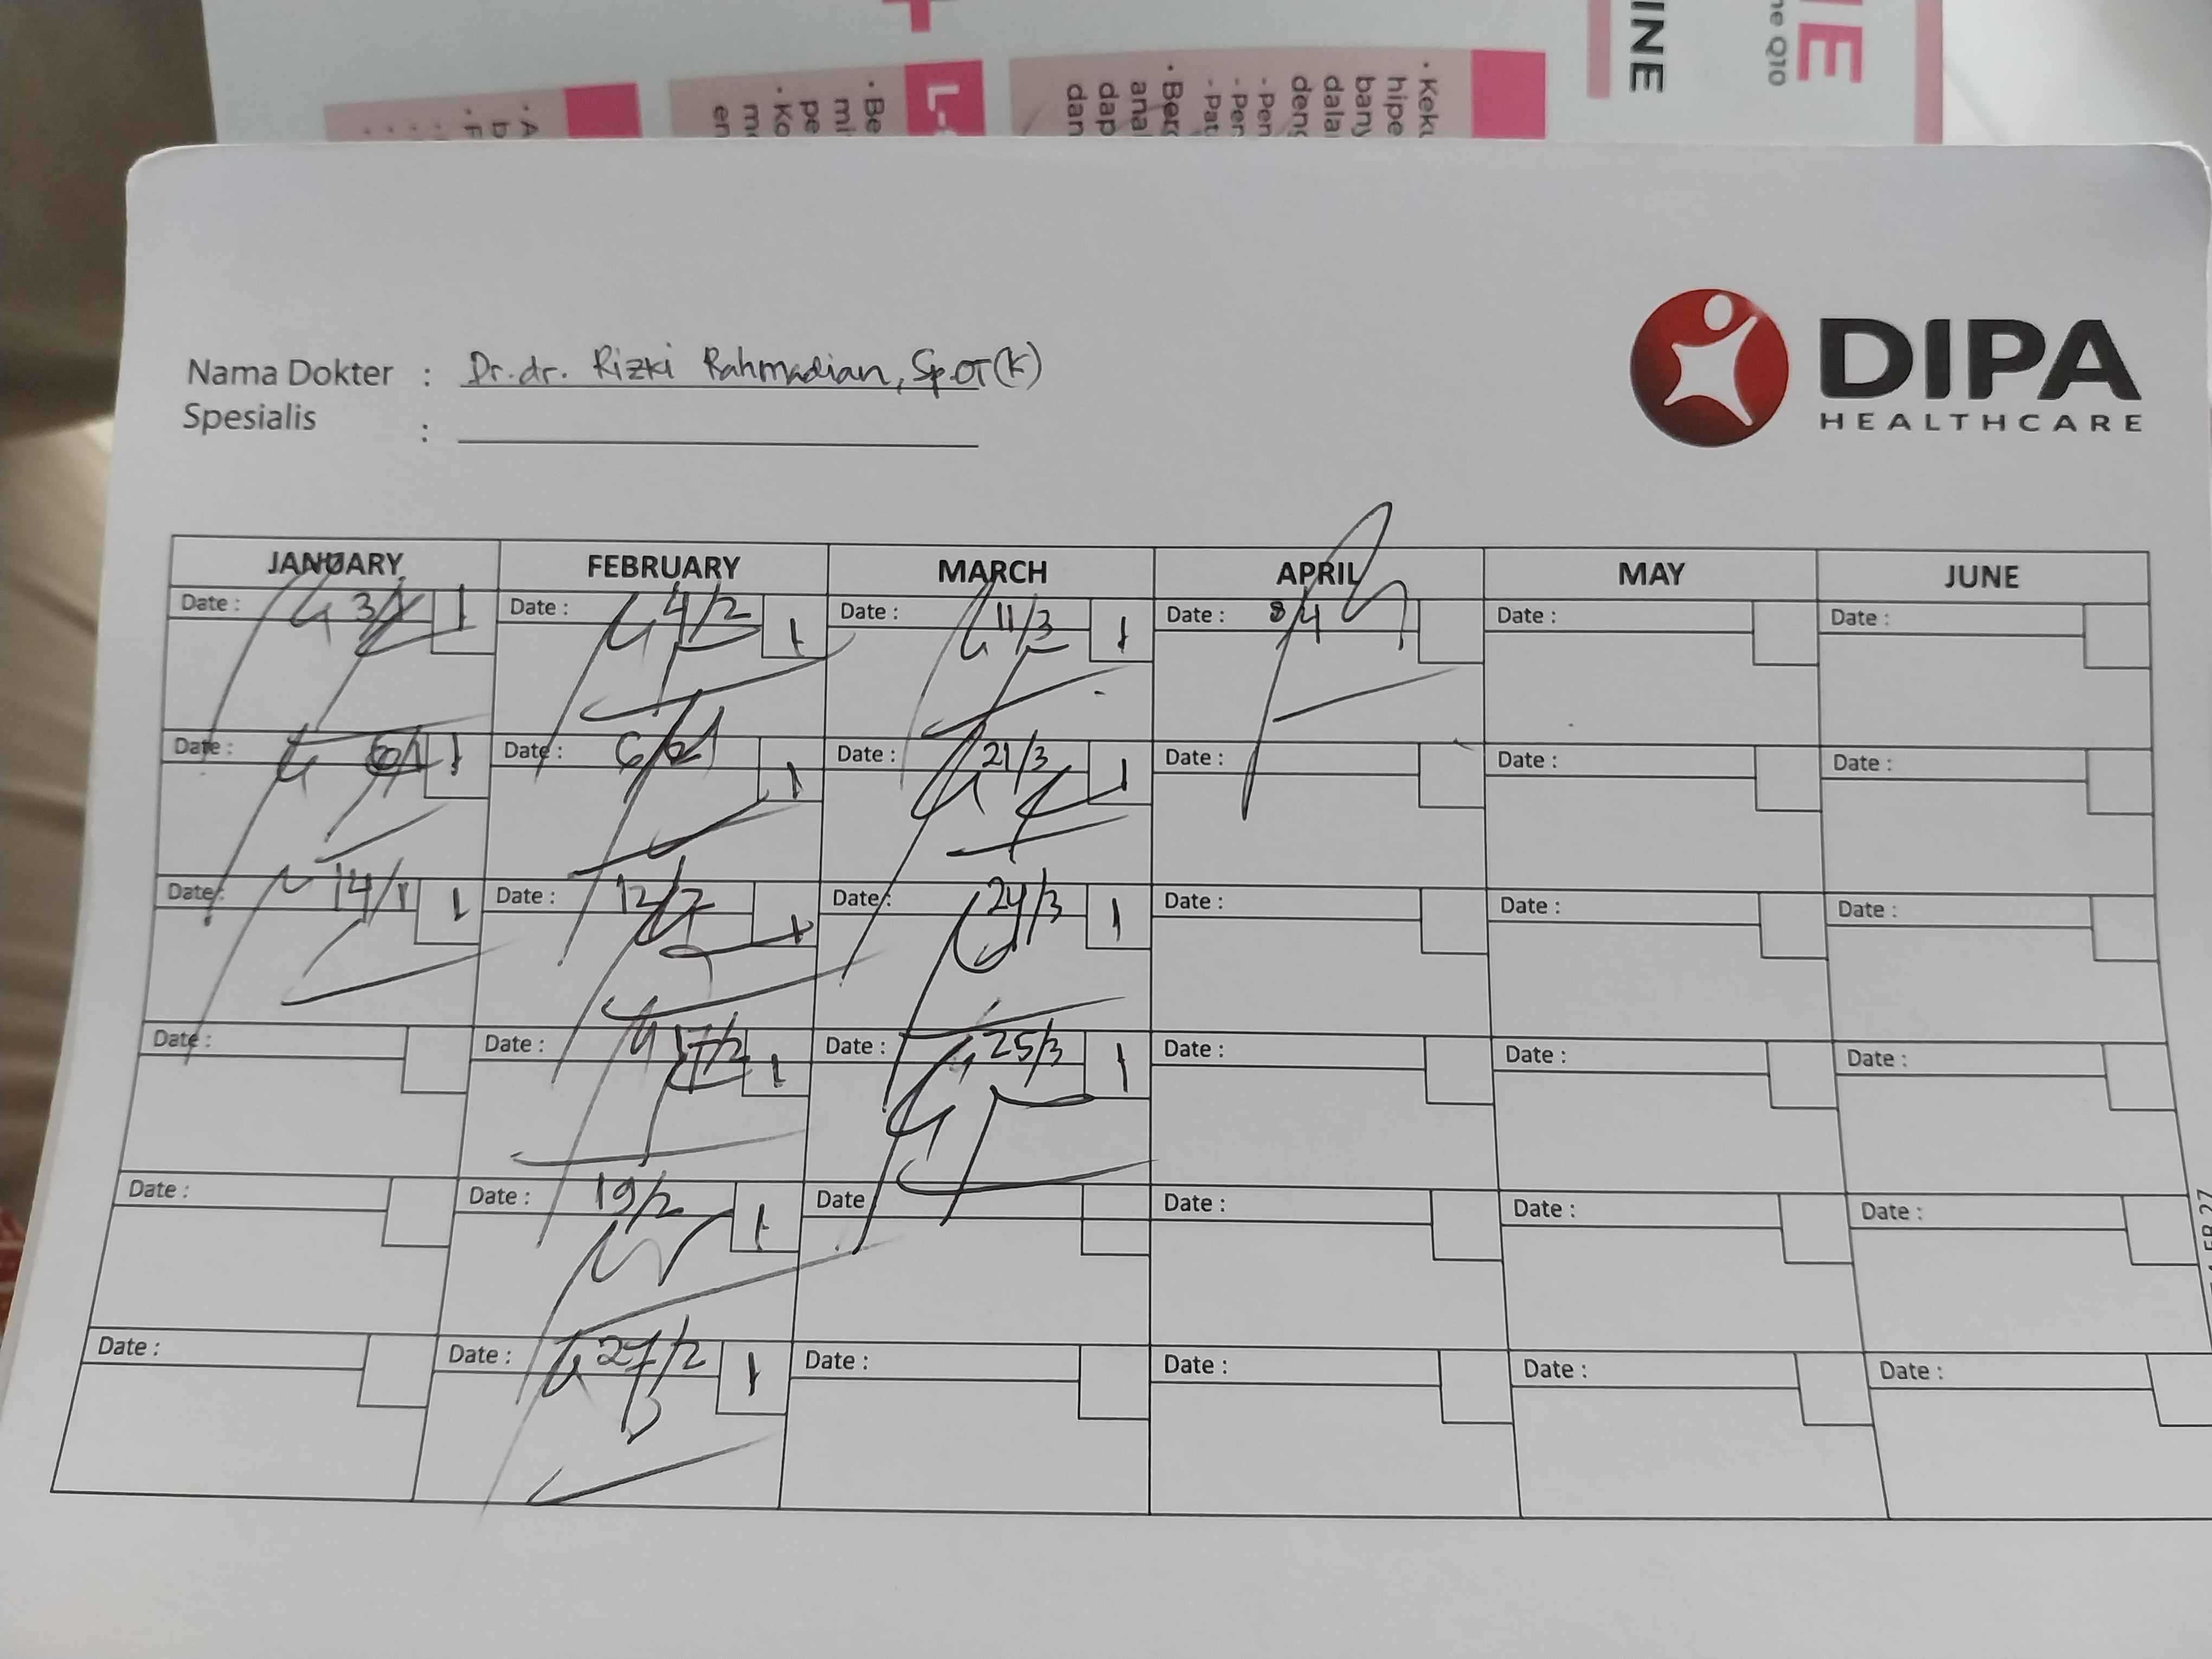 INE
ne Q10
IE
L-
Nama Dokter : Dr. dr. Rizki Rahmadian, Sp.OT(K)
Spesialis :
DIPA
HEALTHCARE
JANUARY FEBRUARY MARCH APRIL MAY JUNE
Date : 3/1 1 Date : 4/2 1 Date : 11/3 1 Date : 8/4 Date : Date :
Date : 6/1 1 Date : 6/2 1 Date : 21/3 1 Date : Date : Date :
Date : 14/1 1 Date : 12/2 1 Date : 24/3 1 Date : Date : Date :
Date : Date : 17/2 1 Date : 25/3 1 Date : Date : Date :
Date : Date : 19/2 1 Date Date : Date : Date :
Date : Date : 27/2 1 Date : Date : Date : Date :